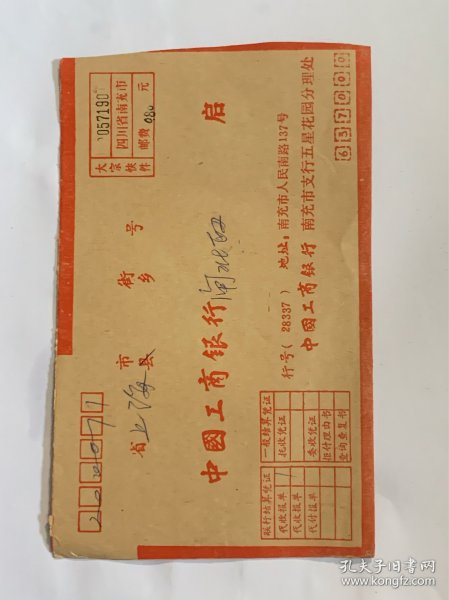 200071
省上海市县 街乡 号
大宗快件
057190
四川省南充市
邮费 080 元
中國工商银行闸北区 启
行号(28337) 地址:南充市人民南路137号
中國工商银行 南充市支行五星花园分理处
637000
联行结算凭证 一般结算凭证
代收报单 托收凭证
代收报单 委收凭证
代付报单 拒付理由书
查询查复书
孔夫子旧书网
www.kongfz.com